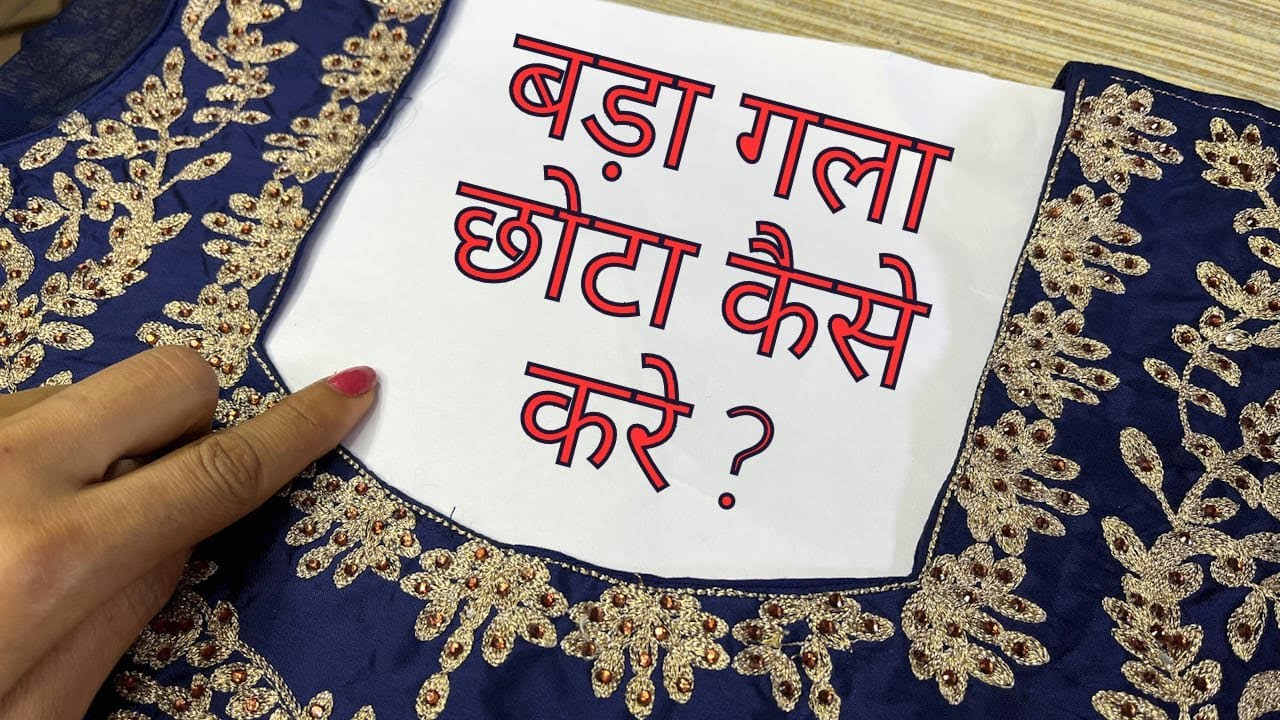 बड़ा गला
छोटा कैसे
करे ?